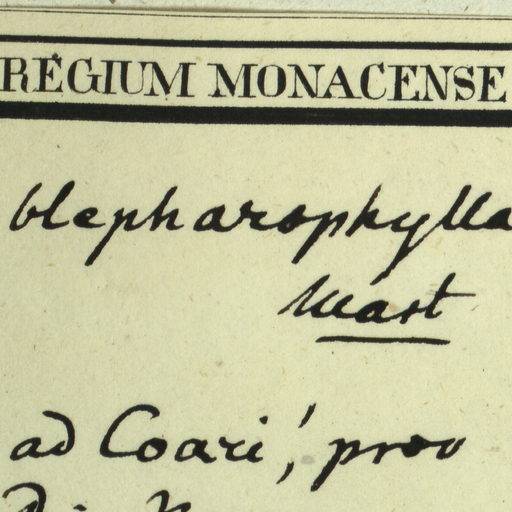 REGIUM MONACENSE
blepharophylla
Mart
ad Coari, prov